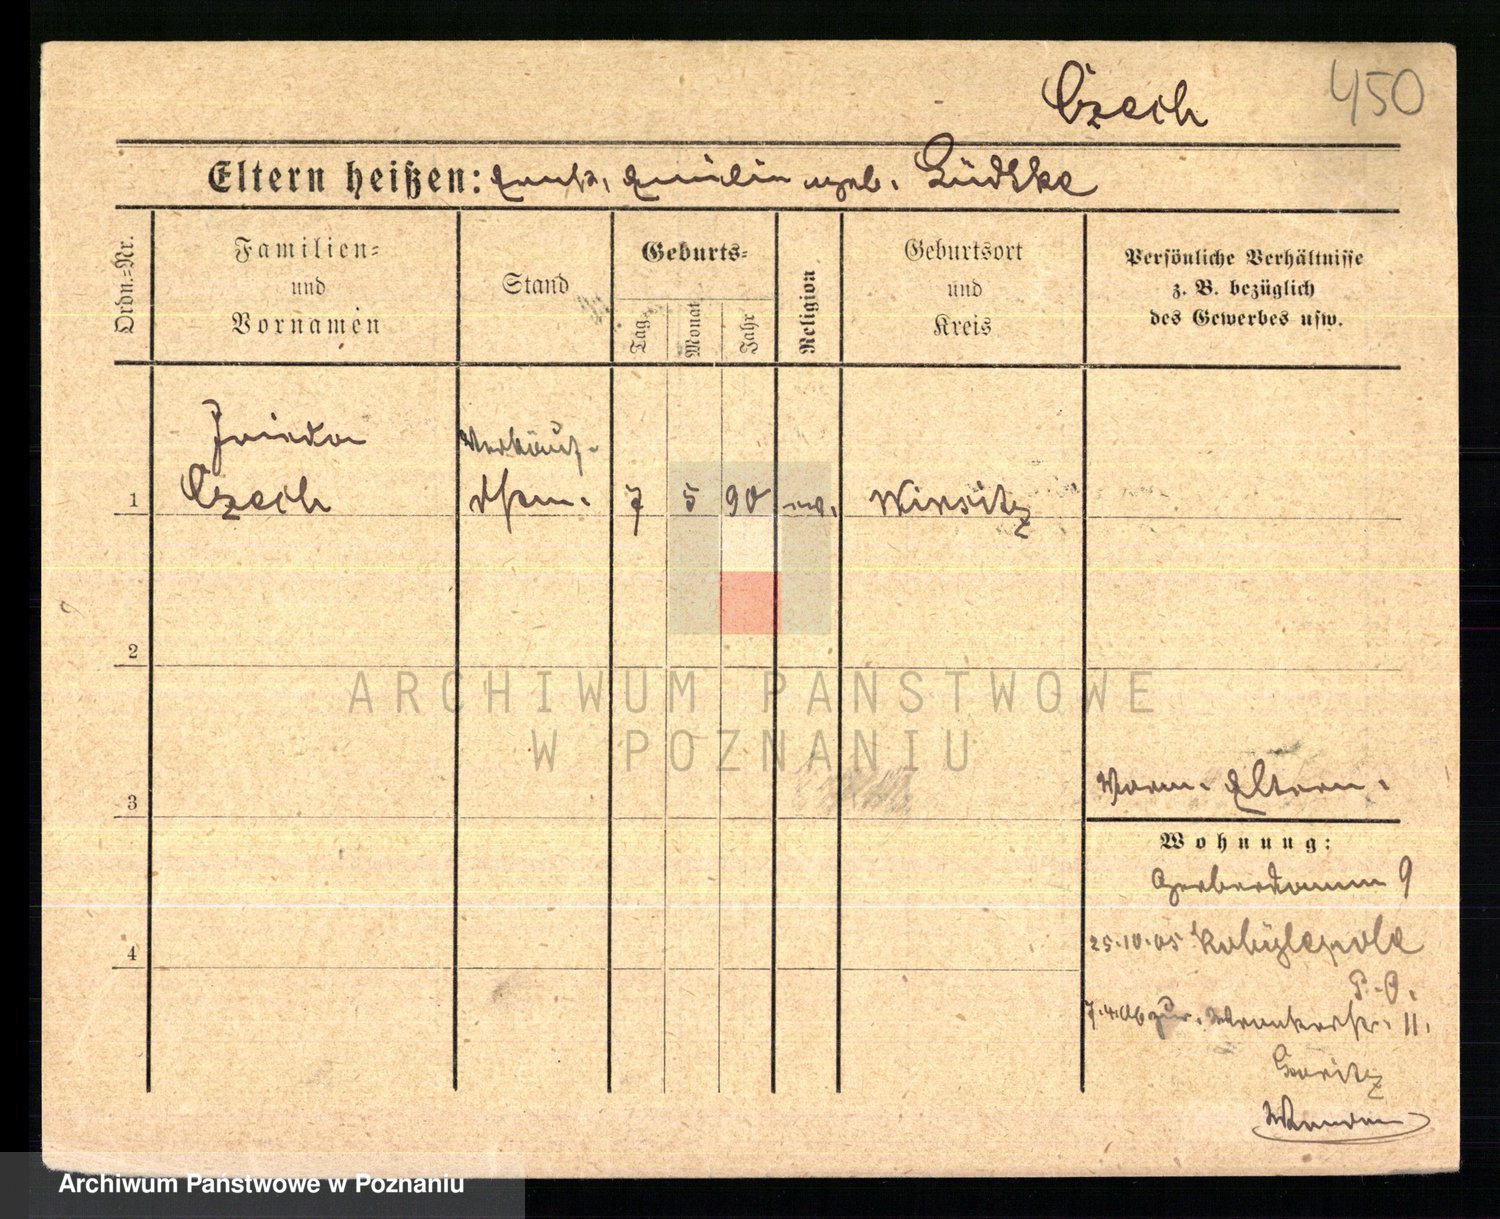 Czech
450
Eltern heißen: Emilie geb. Lüdtke
Ordn.=Nr.
Familien=
und
Vornamen
Stand
Geburts=
Tag
Monat
Jahr
Religion
Geburtsort
und
Kreis
Persönliche Verhältnisse
z. B. bezüglich
des Gewerbes usw.
Frieda
Verkäuf-
1 Czech 7 5 90 ev. Wirsitz
2
ARCHIWUM PAŃSTWOWE
W POZNANIU
3 Eltern.
Wohnung:
Gerberdamm 9
25.10.05 Kobylepole
P.-O.
4
7.4.06 zur. 11.
Archiwum Państwowe w Poznaniu